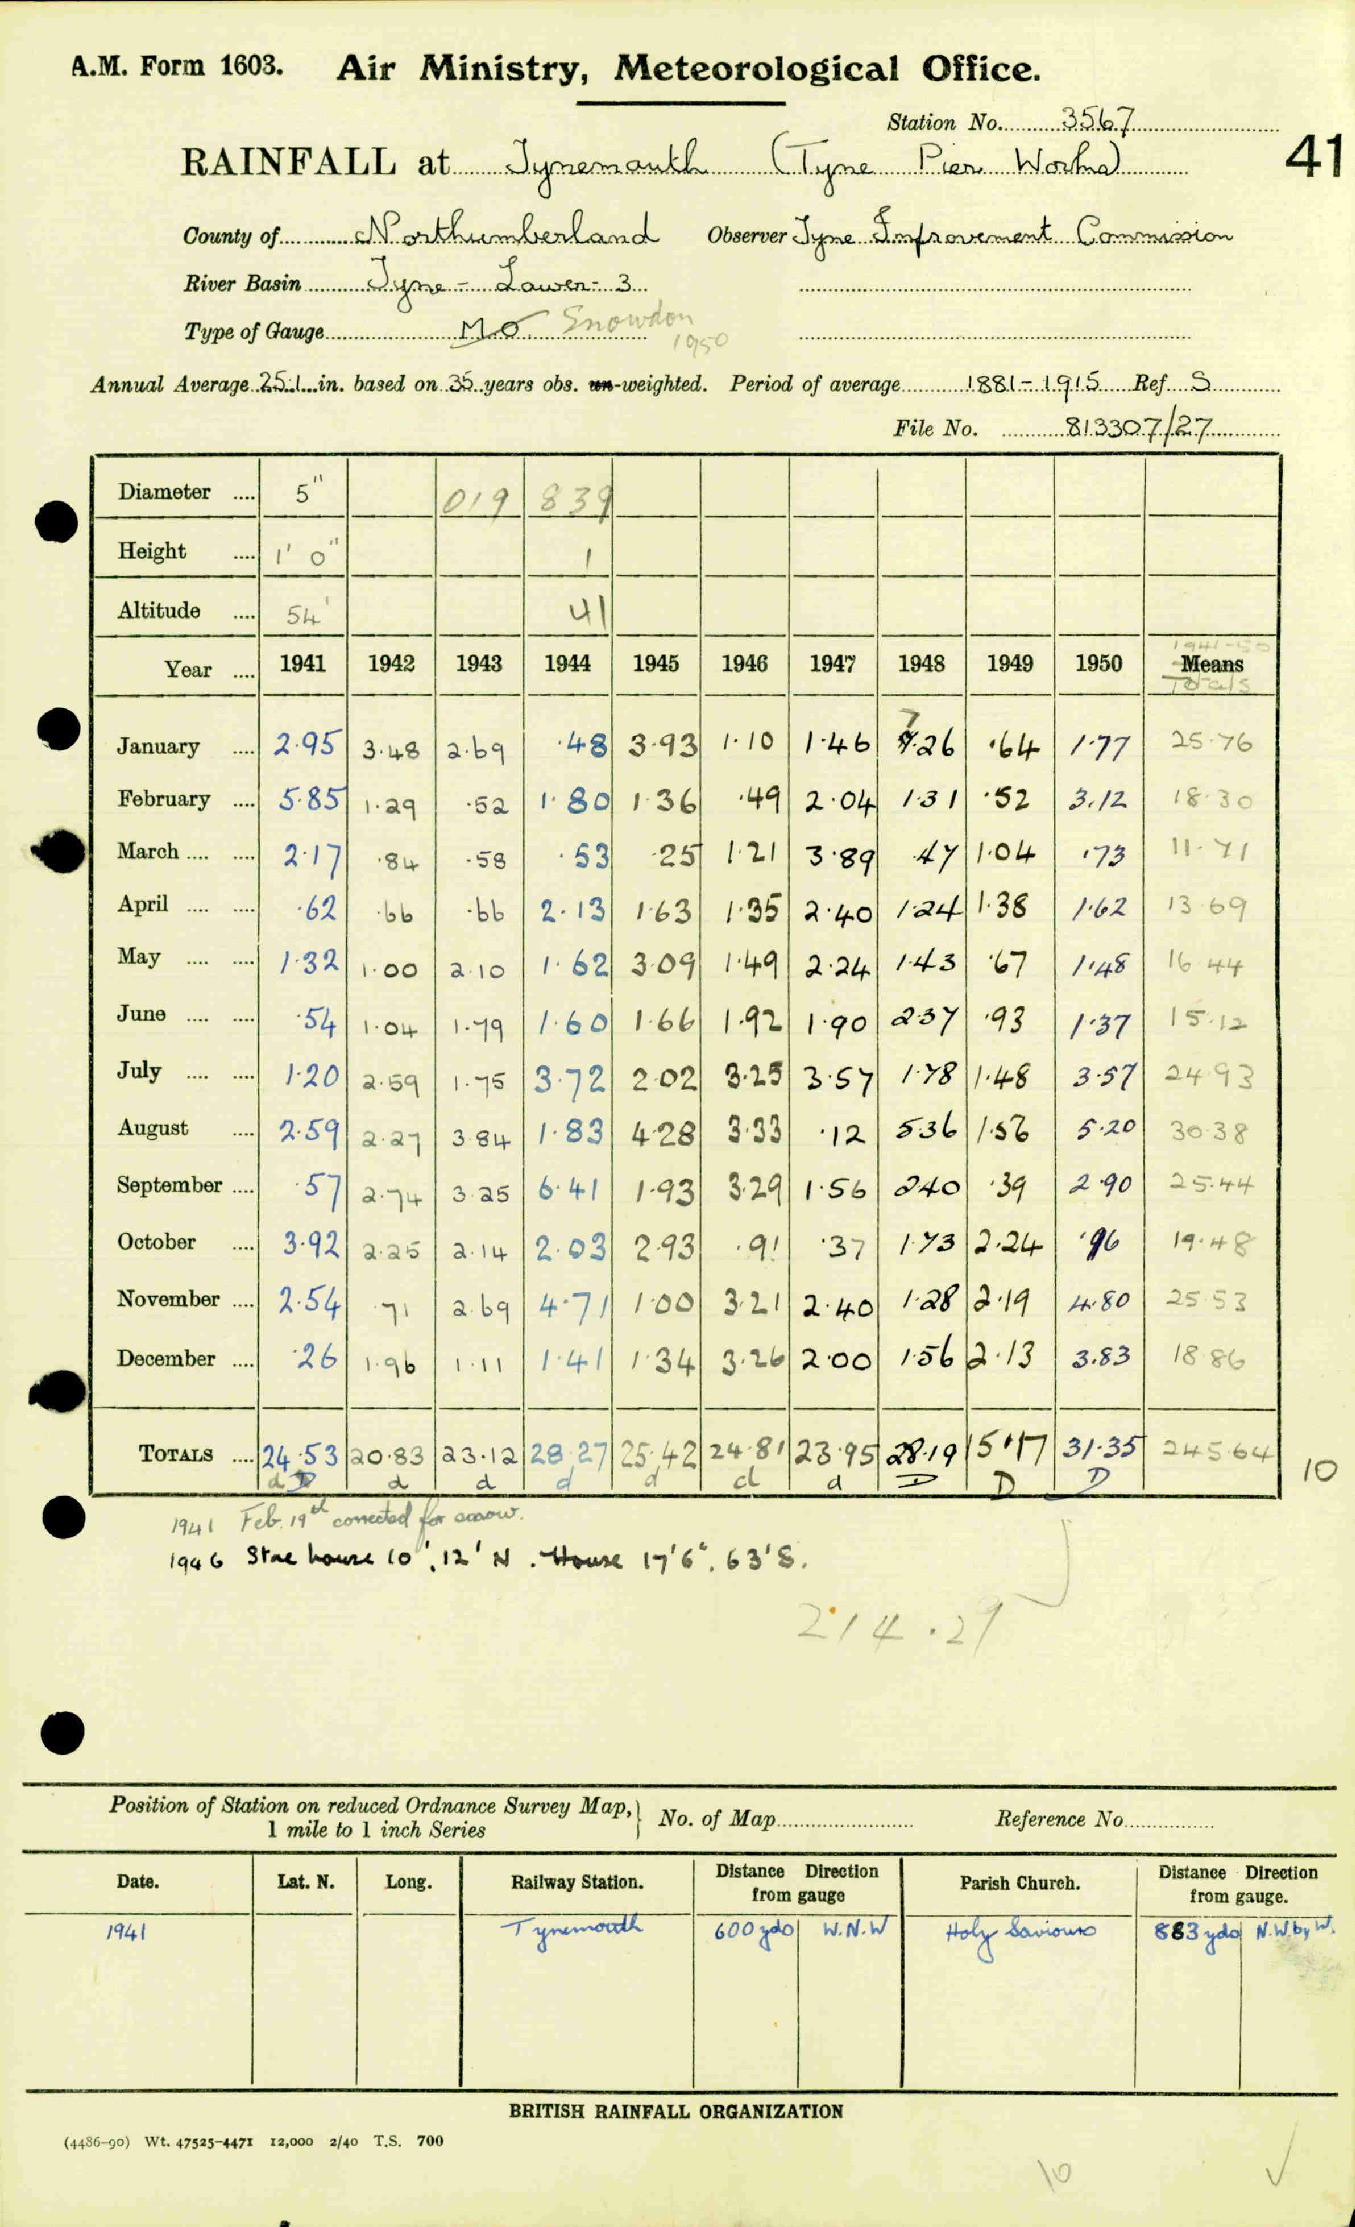 A.M. Form 1603. Air Ministry, Meteorological Office.
Station No. 3567
41
RAINFALL at Tynemouth (Tyne Pier Works)
County of Northumberland Observer Tyne Improvement Commission
River Basin Tyne - Lower - 3
Type of Gauge M.O. Snowdon
1950
Annual Average 25.1 in. based on 35 years obs. un-weighted. Period of average 1881-1915 Ref S
File No. 813307/27
Diameter .... 5" 019 839
Height .... 1' 0" 1
Altitude .... 54' 41
1941-50
Year .... 1941 1942 1943 1944 1945 1946 1947 1948 1949 1950 Means
Totals
January .... 2.95 3.48 2.69 .48 3.93 1.10 1.46 7.26 .64 1.77 25.76
February .... 5.85 1.29 .52 1.80 1.36 .49 2.04 1.31 .52 3.12 18.30
March .... .... 2.17 .84 .58 .53 .25 1.21 3.89 .47 1.04 .73 11.71
April .... .... .62 .66 .66 2.13 1.63 1.35 2.40 1.24 1.38 1.62 13.69
May .... .... 1.32 1.00 2.10 1.62 3.09 1.49 2.24 1.43 .67 1.48 16.44
June .... .... .54 1.04 1.79 1.60 1.66 1.92 1.90 2.37 .93 1.37 15.12
July .... .... 1.20 2.59 1.75 3.72 2.02 3.25 3.57 1.78 1.48 3.57 24.93
August .... 2.59 2.27 3.84 1.83 4.28 3.33 .12 5.36 1.56 5.20 30.38
September .... .57 2.74 3.25 6.41 1.93 3.29 1.56 2.40 .39 2.90 25.44
October .... 3.92 2.25 2.14 2.03 2.93 .91 .37 1.73 2.24 .96 19.48
November .... 2.54 .71 2.69 4.71 1.00 3.21 2.40 1.28 2.19 4.80 25.53
December .... .26 1.96 1.11 1.41 1.34 3.26 2.00 1.56 2.13 3.83 18.86
TOTALS .... 24.53 20.83 23.12 28.27 25.42 24.81 23.95 28.19 15.17 31.35 245.64
10
d D d d d d d d D D D
1941 Feb. 19th corrected for snow.
1946 Stne house 10', 12' N. House 17'6", 63'S.
214.29
Position of Station on reduced Ordnance Survey Map, 1 mile to 1 inch Series } No. of Map Reference No.
Date. Lat. N. Long. Railway Station. Distance from gauge Direction Parish Church. Distance from gauge. Direction
1941 Tynemouth 600 yds W.N.W Holy Saviours 883 yds N.W. by W.
BRITISH RAINFALL ORGANIZATION
(4486-90) Wt. 47525-4471 12,000 2/40 T.S. 700
10